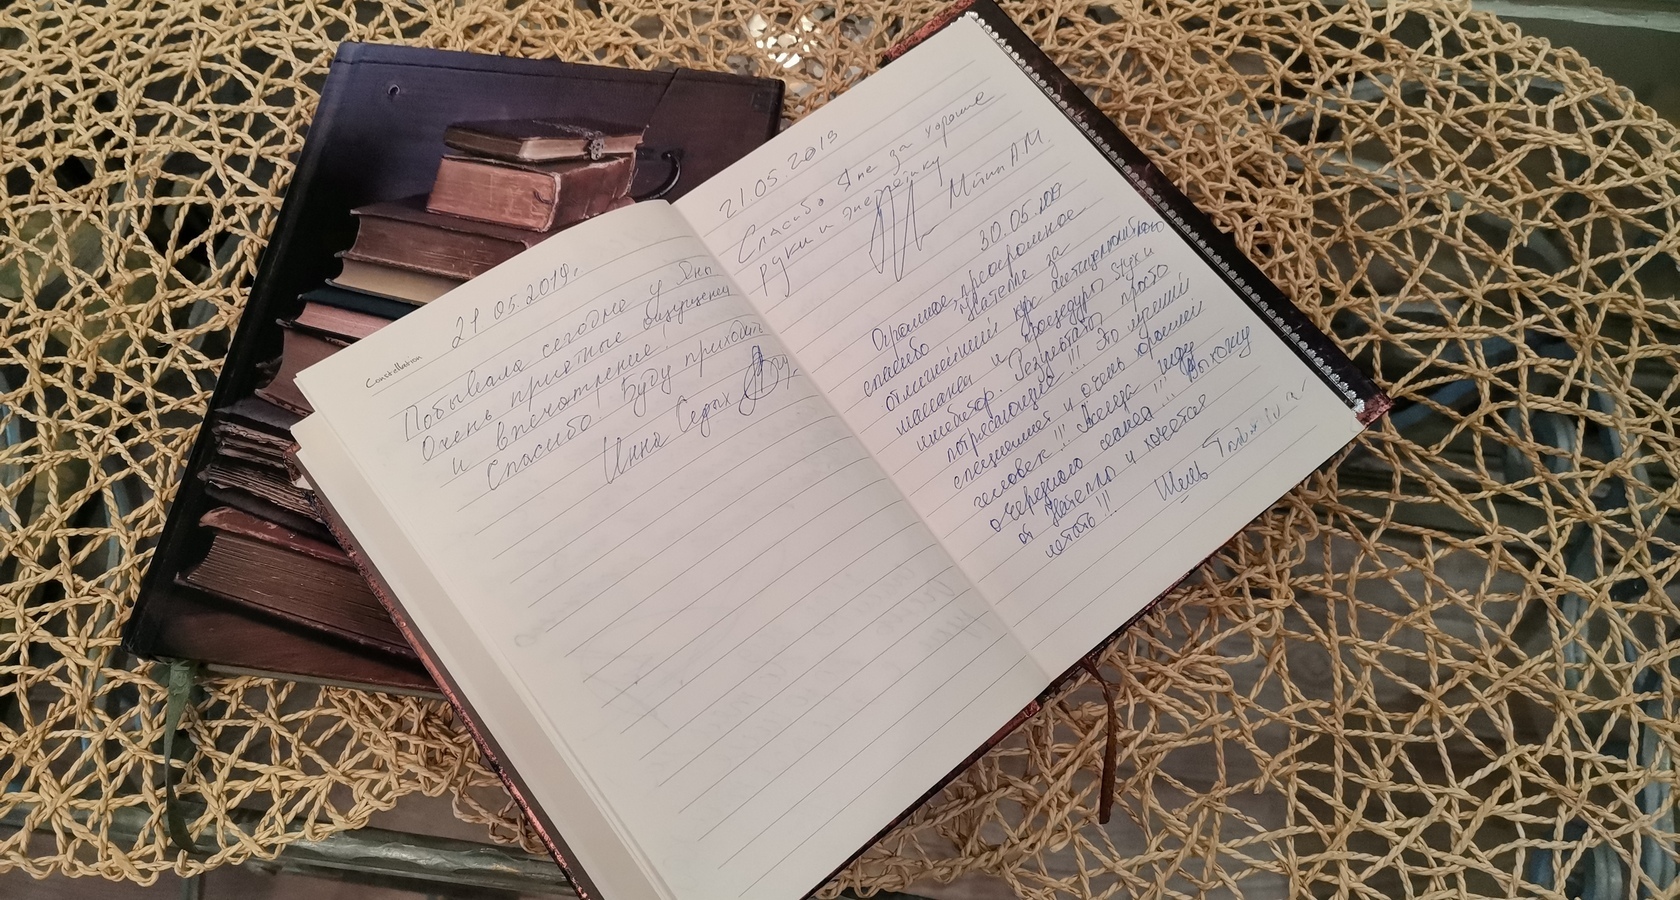 Constellation
21 05.2019.
Побывала сегодня у Яны
Очень приятные ощущения
и впечатление!
Спасибо! Буду приходить
Инна Седых
21.05.2019
Спасибо Яне за хорошие
руки и энергетику
А.М.
30.05.2019
Огромное, преогромное
спасибо Наталье за
отличнейший курс антицеллюлитного
массажа и процедуры Styx и
Результат просто
потрясающий!!! Это лучший
специалист и очень хороший
человек!!! Всегда жду
очередного сеанса!!! Выхожу
от Натальи и хочется
летать!!!